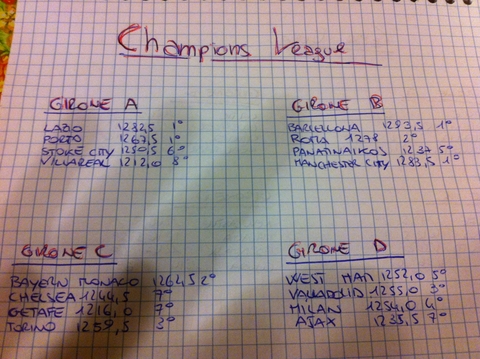 Champions League
GIRONE A
LAZIO 1282,5 1°
PORTO 1267,5 1°
STOKE CITY 1250,5 6°
VILLAREAL 1212,0 8°
GIRONE B
BARCELLONA 1293,5 1°
ROMA 1278 2°
PANATINAIKOS 1237,5 5°
MANCHESTER CITY 1283,5 1°
GIRONE C
BAYERN MONACO 1262,5 2°
CHELSEA 1244,5 7°
GETAFE 1216,0 7°
TORINO 1259,5 3°
GIRONE D
WEST HAM 1252,0 5°
VALLADOLID 1255,0 3°
MILAN 1254,0 4°
AJAX 1235,5 7°